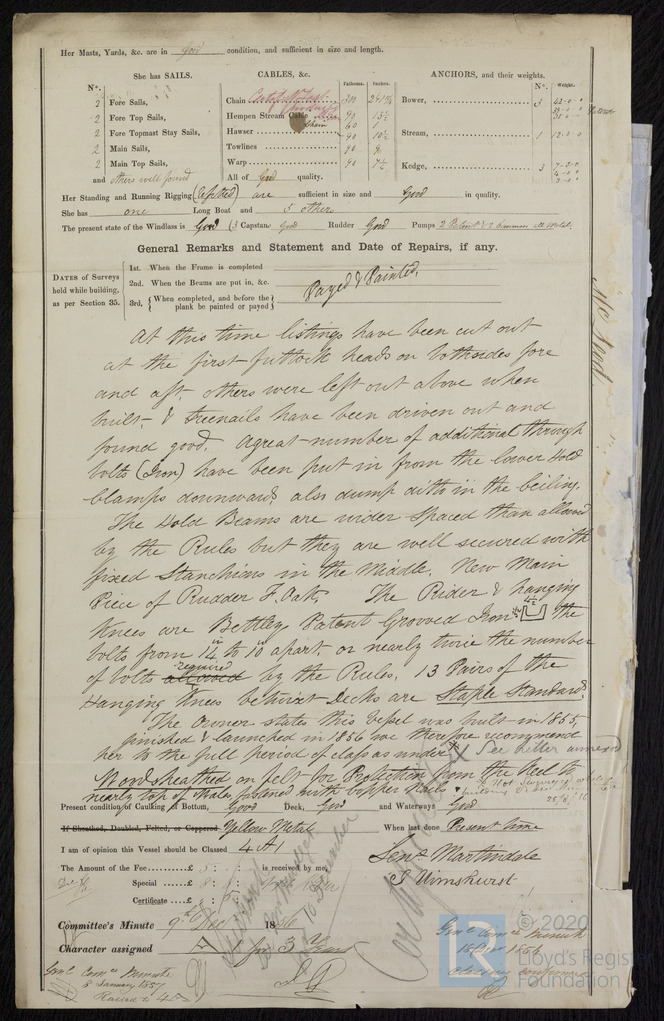 Her Masts, Yards, &c. are in good condition, and sufficient in size and length.
She has SAILS.
No.
2 Fore Sails,
2 Fore Top Sails,
2 Fore Topmast Stay Sails,
2 Main Sails,
2 Main Top Sails,
and others well found
CABLES, &c.
Fathoms. Inches.
Chain 300
Hempen Stream Cable 90 13½
60 1
Hawser 90 10½
Towlines 90 9
Warp 90 7½
All of Good quality.
ANCHORS, and their weights.
No. Weight.
Bower, 3 42-0-0
Stream, 1 12-0-0
Kedge, 3 7-0-0
4-0-0
3-0-0
Her Standing and Running Rigging (Refitted) are sufficient in size and Good in quality.
She has one Long Boat and 5 others
The present state of the Windlass is Good (3 Capstans Good Rudder Good Pumps 2 Patent & 2 Common all Metal.
General Remarks and Statement and Date of Repairs, if any.
DATES of Surveys
held while building,
as per Section 35.
1st. When the Frame is completed
2nd. When the Beams are put in, &c.
3rd, { When completed, and before the
plank be painted or payed }
Payed & Painted.
At this time listings have been cut out
at the first futtock heads on bothsides fore
and aft, others were left out above when
built, & treenails have been driven out and
found good. A great number of additional through
bolts (Iron) have been put in from the lower Hold
Clamps downwards, also dump ditto in the Ceiling.
The Hold Beams are wider spaced than allowed
by the Rules but they are well secured with
fixed Stanchions in the Middle. New Main
Piece of Rudder F. Oak. The Rider & hanging
Knees are Bettley Patent Grooved Iron 4½ the
bolts from 14 in to 10 in apart or nearly twice the number
of bolts allowed required by the Rules. 13 Pairs of the
Hanging Knees betwixt Decks are Staple Standards.
The owner states this Vessel was built in 1855,
finished & launched in 1856 we therefore recommend
her to the full period of class as under X See letter annexed
Woodsheathed on felt for Protection from the Keel to
nearly top of Wales, fastened with copper nails
Present condition of Caulking of Bottom, Good Deck, Good and Waterways Good
If Sheathed, Doubled, Felted, or Coppered Yellow Metal When last done Present time
I am of opinion this Vessel should be Classed 4 A1
The Amount of the Fee......£ 5 : is received by me,
Special ......£
Certificate ....£
Geo. Martindale
Committee's Minute 9th Dec 1856
Character assigned A for 3 Years
Genl. Comee Minute
8 January 1857
Raised to 4
Genl Comee Minute
1856
© 2020
Lloyd's Register
Foundation